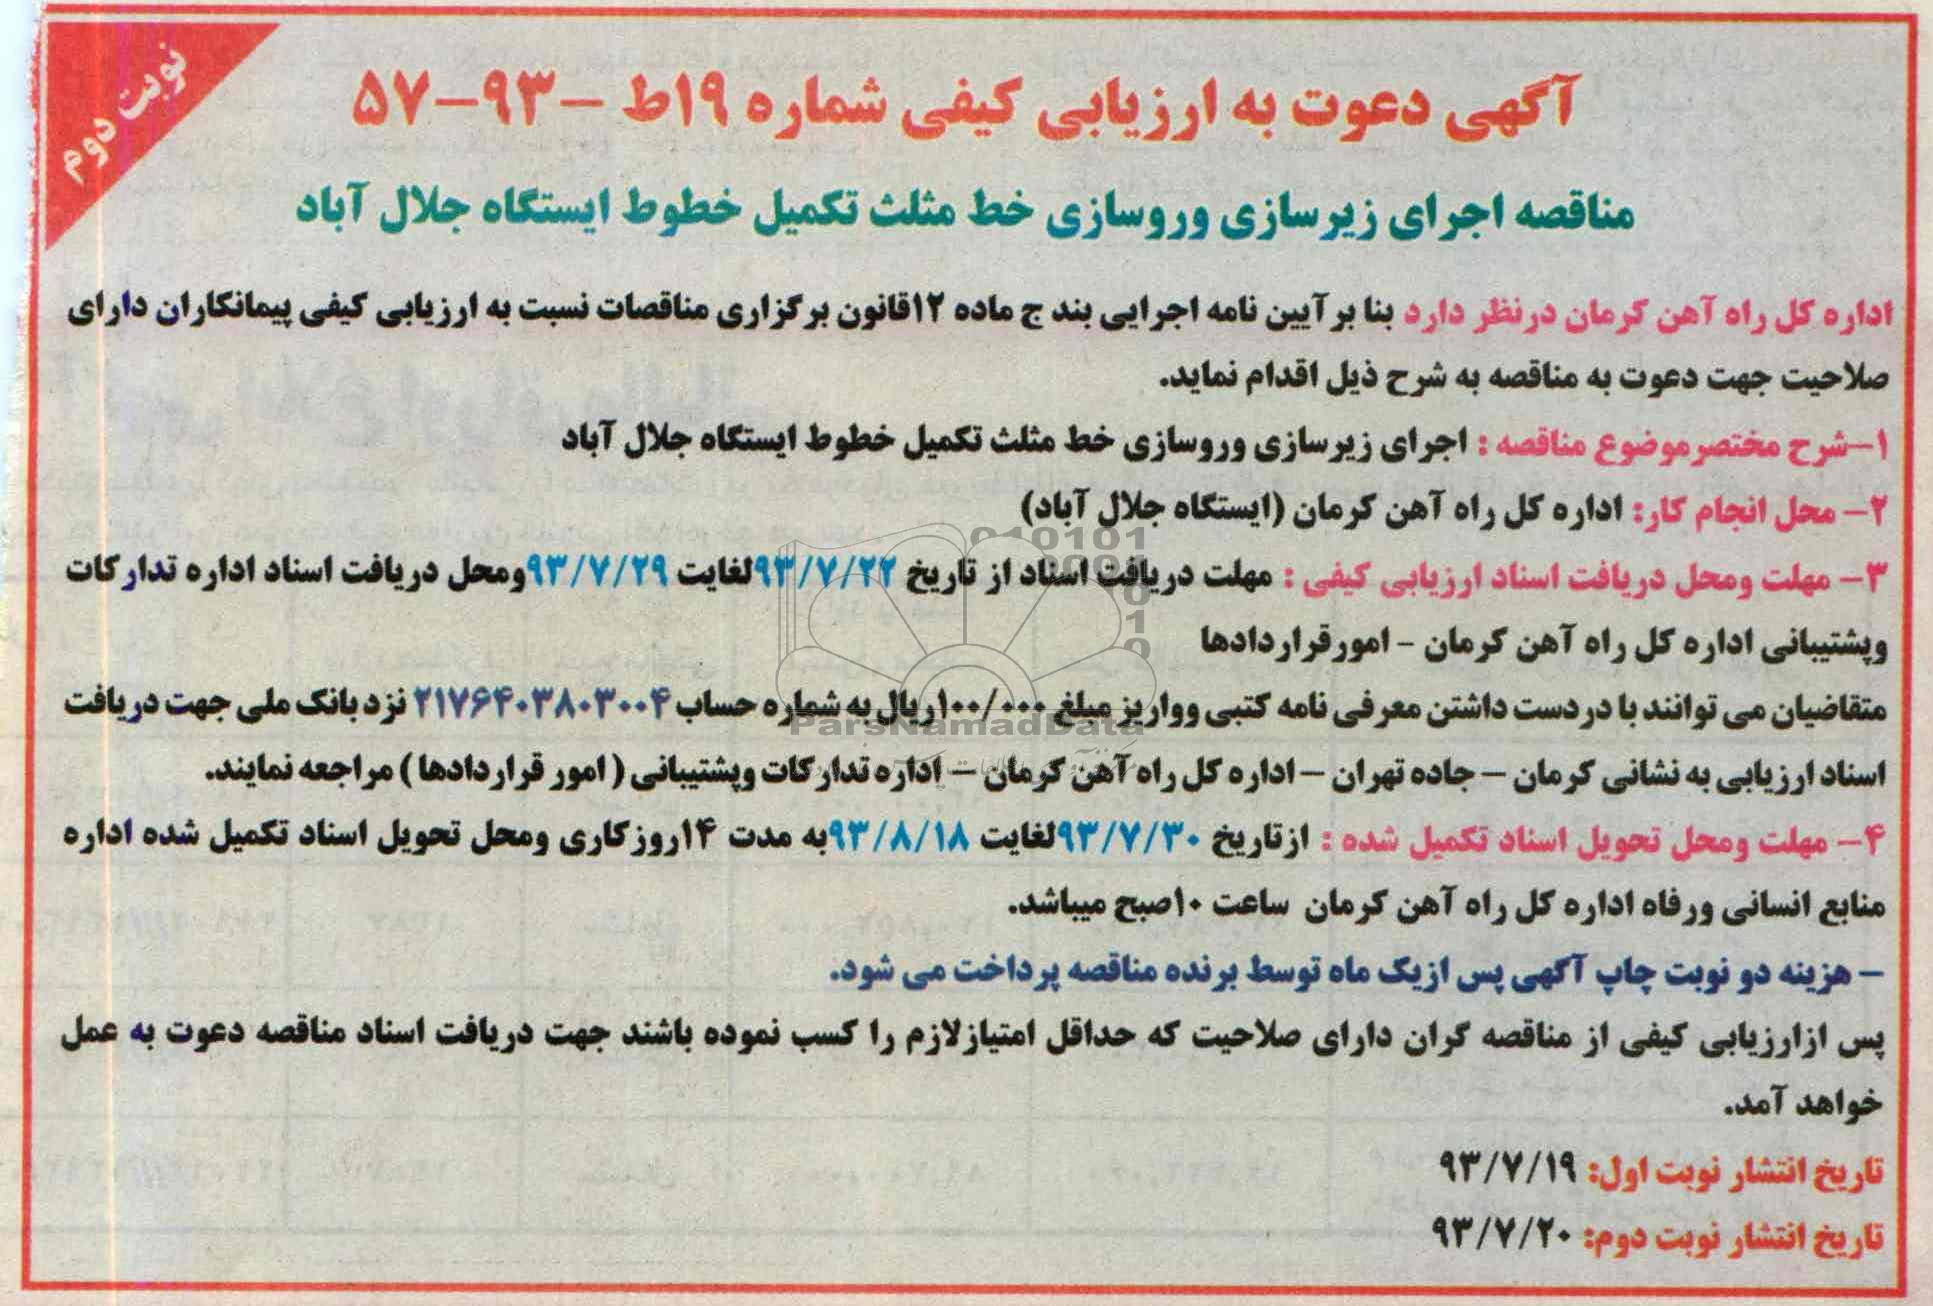 نوبت دوم
آگهی دعوت به ارزیابی کیفی شماره ۱۹ط –۹۳–۵۷
مناقصه اجرای زیرسازی وروسازی خط مثلث تکمیل خطوط ایستگاه جلال آباد
اداره کل راه آهن کرمان درنظر دارد بنا بر آیین نامه اجرایی بند ج ماده ۱۲قانون برگزاری مناقصات نسبت به ارزیابی کیفی پیمانکاران دارای
صلاحیت جهت دعوت به مناقصه به شرح ذیل اقدام نماید.
۱–شرح مختصرموضوع مناقصه : اجرای زیرسازی وروسازی خط مثلث تکمیل خطوط ایستگاه جلال آباد
۲– محل انجام کار: اداره کل راه آهن کرمان (ایستگاه جلال آباد)
۳– مهلت ومحل دریافت اسناد ارزیابی کیفی : مهلت دریافت اسناد از تاریخ ۹۳/۷/۲۲لغایت ۹۳/۷/۲۹ومحل دریافت اسناد اداره تدارکات
وپشتیبانی اداره کل راه آهن کرمان – امورقراردادها
متقاضیان می توانند با دردست داشتن معرفی نامه کتبی وواریز مبلغ ۱۰۰/۰۰۰ریال به شماره حساب ۲۱۷۶۴۰۳۸۰۳۰۰۴ نزد بانک ملی جهت دریافت
اسناد ارزیابی به نشانی کرمان – جاده تهران – اداره کل راه آهن کرمان – اداره تدارکات وپشتیبانی ( امور قراردادها ) مراجعه نمایند.
۴– مهلت ومحل تحویل اسناد تکمیل شده : ازتاریخ ۹۳/۷/۳۰لغایت ۹۳/۸/۱۸به مدت ۱۴روزکاری ومحل تحویل اسناد تکمیل شده اداره
منابع انسانی ورفاه اداره کل راه آهن کرمان ساعت ۱۰صبح میباشد.
– هزینه دو نوبت چاپ آگهی پس ازیک ماه توسط برنده مناقصه پرداخت می شود.
پس ازارزیابی کیفی از مناقصه گران دارای صلاحیت که حداقل امتیازلازم را کسب نموده باشند جهت دریافت اسناد مناقصه دعوت به عمل
خواهد آمد.
تاریخ انتشار نوبت اول: ۹۳/۷/۱۹
تاریخ انتشار نوبت دوم: ۹۳/۷/۲۰
ParsNamadData